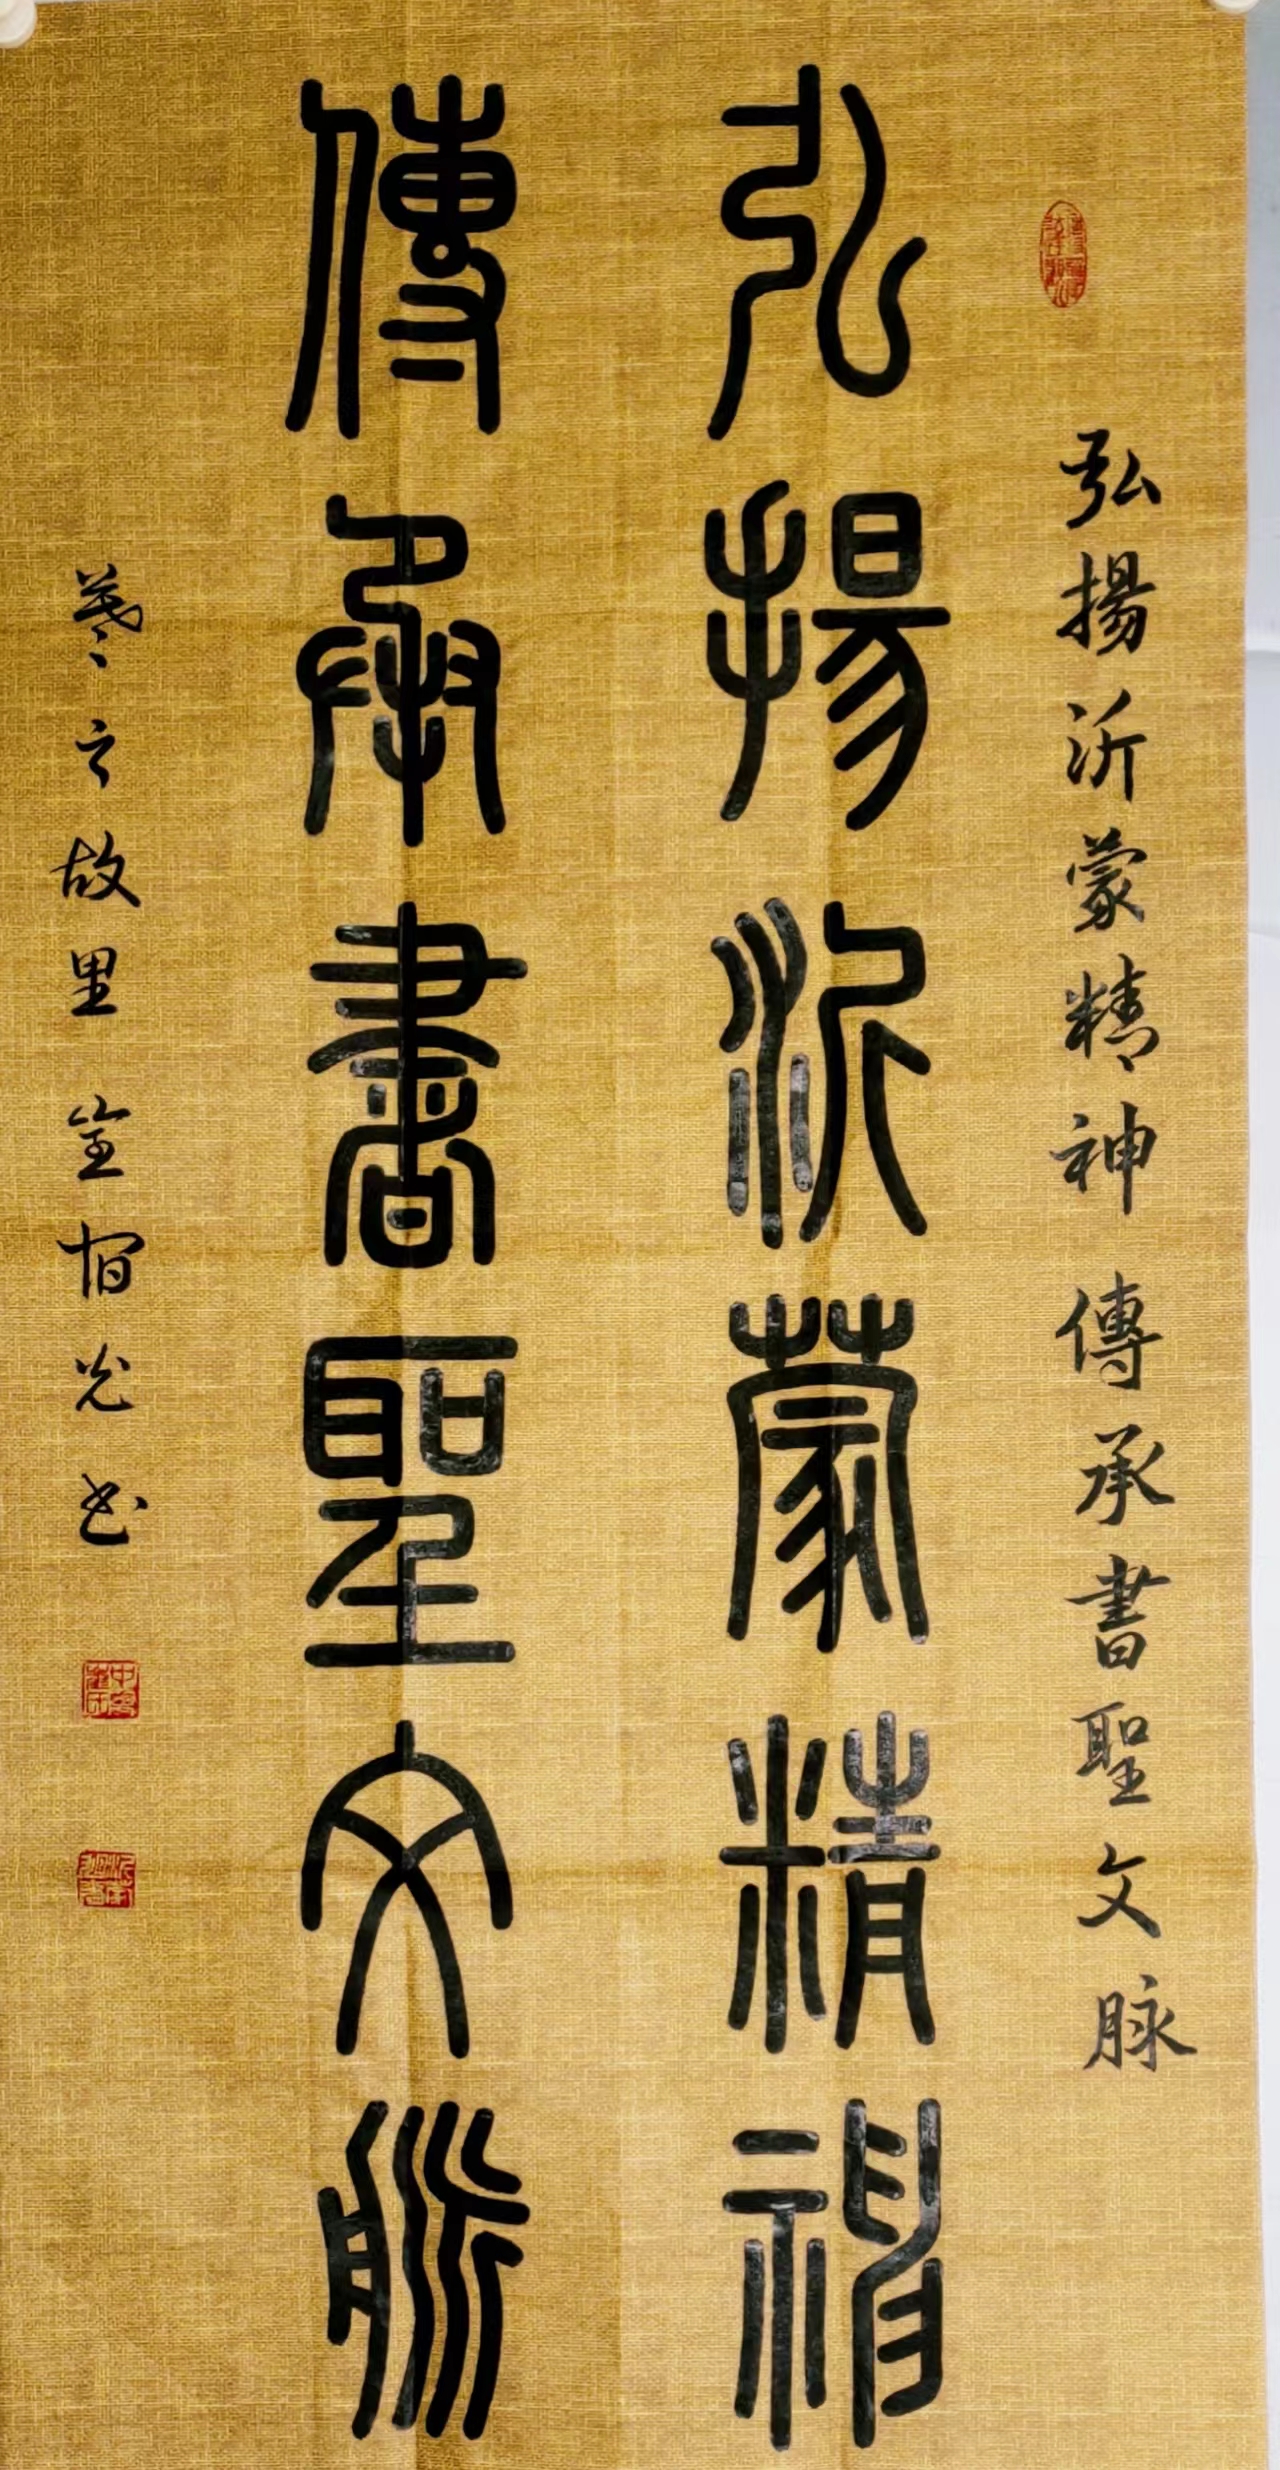 弘揚沂蒙精神傳承書聖文脉
弘揚沂蒙精神
傳承書聖文脈
羲之故里
光书